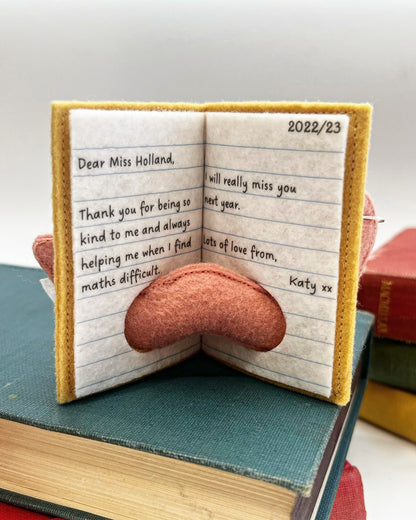 Dear Miss Holland,
Thank you for being so
kind to me and always
helping me when I find
maths difficult.
2022/23
I will really miss you
next year.
Lots of love from,
Katy xx